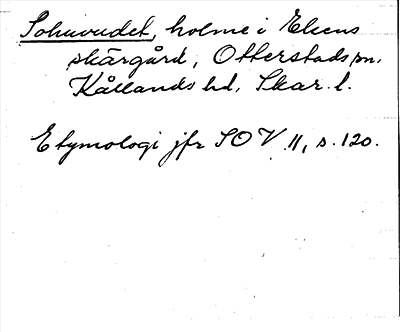 Sohuvudet, holme i Ekens
skärgård, Otterstads sn.
Kållands hd, Skar. l.
Etymologi jfr SOV 11, s. 120.